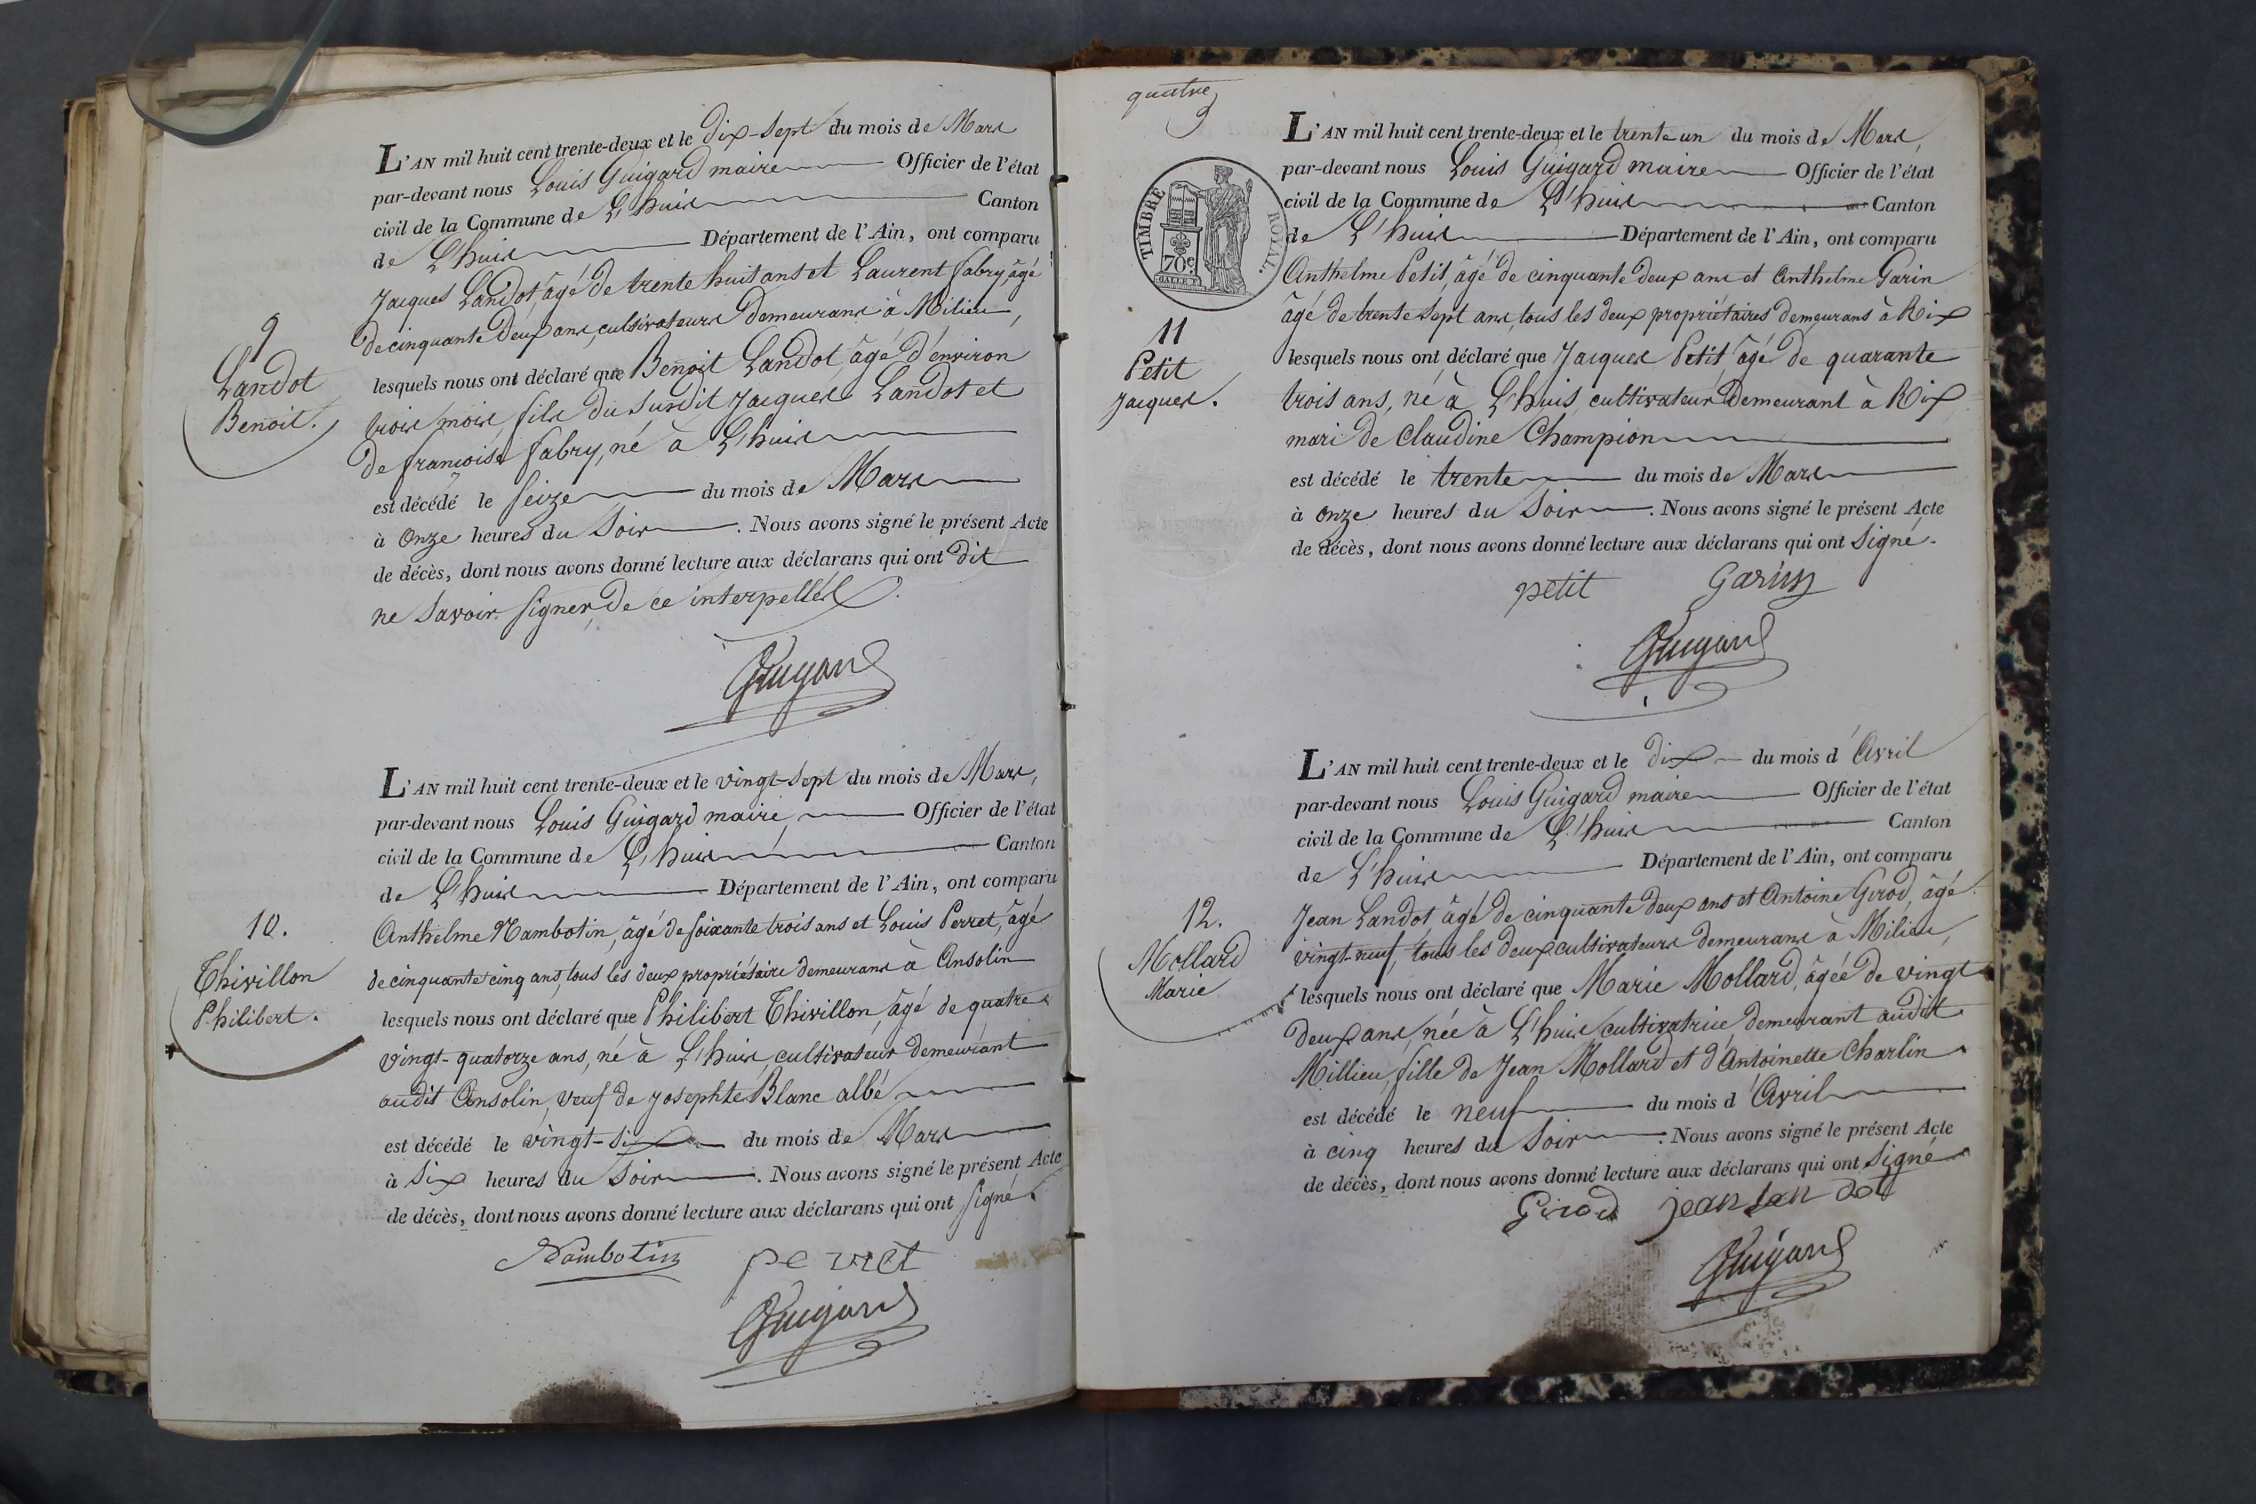 L'AN mil huit cent trente-deux et le dix-sept du mois de Mars
par-devant nous Louis Guigard maire Officier de l'état
civil de la Commune de L'huis Canton
de L'huis Département de l'Ain, ont comparu
Jacques Landot, âgé de trente huit ans et Laurent fabry, âgé
de cinquante deux ans, cultivateurs demeurans à Milieu,
9
Landot
Benoit.
lesquels nous ont déclaré que Benoit Landot, âgé d'environ
trois mois, fils du susdit Jacques Landot et
de françoise fabry, né à L'huis
est décédé le seize du mois de Mars
à onze heures du Soir. Nous avons signé le présent Acte
de décès, dont nous avons donné lecture aux déclarans qui ont dit
ne savoir signer, de ce interpellés.
Guigard
L'AN mil huit cent trente-deux et le vingt-sept du mois de Mars,
par-devant nous Louis Guigard maire, Officier de l'état
civil de la Commune de L'huis Canton
de L'huis Département de l'Ain, ont comparu
Anthelme Nambotin, âgé de soixante trois ans et Louis Perret, âgé
de cinquante cinq ans, tous les deux propriétaire demeurans à Ansolin
10.
Thivillon
Philibert.
lesquels nous ont déclaré que Philibert Thivillon, âgé de quatre
vingt-quatorze ans, né à L'huis, cultivateur demeurant
audit Ansolin, veuf de Josephte Blanc albé
est décédé le vingt-six du mois de Mars
à six heures du Soir. Nous avons signé le présent Acte
de décès, dont nous avons donné lecture aux déclarans qui ont signé.
Nambotin perret
Guigard
quatre
TIMBRE ROYAL.
70c
L'AN mil huit cent trente-deux et le trente un du mois de Mars,
par-devant nous Louis Guigard maire Officier de l'état
civil de la Commune de L'huis Canton
de L'huis Département de l'Ain, ont comparu
Anthelme Petit, âgé de cinquante deux ans et Anthelme Garin
âgé de trente sept ans, tous les deux propriétaires demeurans à Rix
11
Petit
Jacques.
lesquels nous ont déclaré que Jacques Petit, âgé de quarante
trois ans, né à L'huis, cultivateur demeurant à Rix
mari de Claudine Champion
est décédé le trente du mois de Mars
à onze heures du Soir. Nous avons signé le présent Acte
de décès, dont nous avons donné lecture aux déclarans qui ont Signé.
petit Garin
Guigard
L'AN mil huit cent trente-deux et le dix du mois d'Avril
par-devant nous Louis Guigard maire Officier de l'état
civil de la Commune de L'huis Canton
de L'huis Département de l'Ain, ont comparu
Jean Landot, âgé de cinquante deux ans et Antoine Girod, âgé
vingt-neuf, tous les deux cultivateurs demeurans à Milieu,
12.
Mollard
Marie
lesquels nous ont déclaré que Marie Mollard, âgée de vingt
deux ans, née à L'huis, cultivatrice, demeurant audit
Millieu, fille de Jean Mollard et d'Antoinette Charlin
est décédé le neuf du mois d'Avril
à cinq heures du Soir. Nous avons signé le présent Acte
de décès, dont nous avons donné lecture aux déclarans qui ont Signé
Girod jean lan dot
Guigard